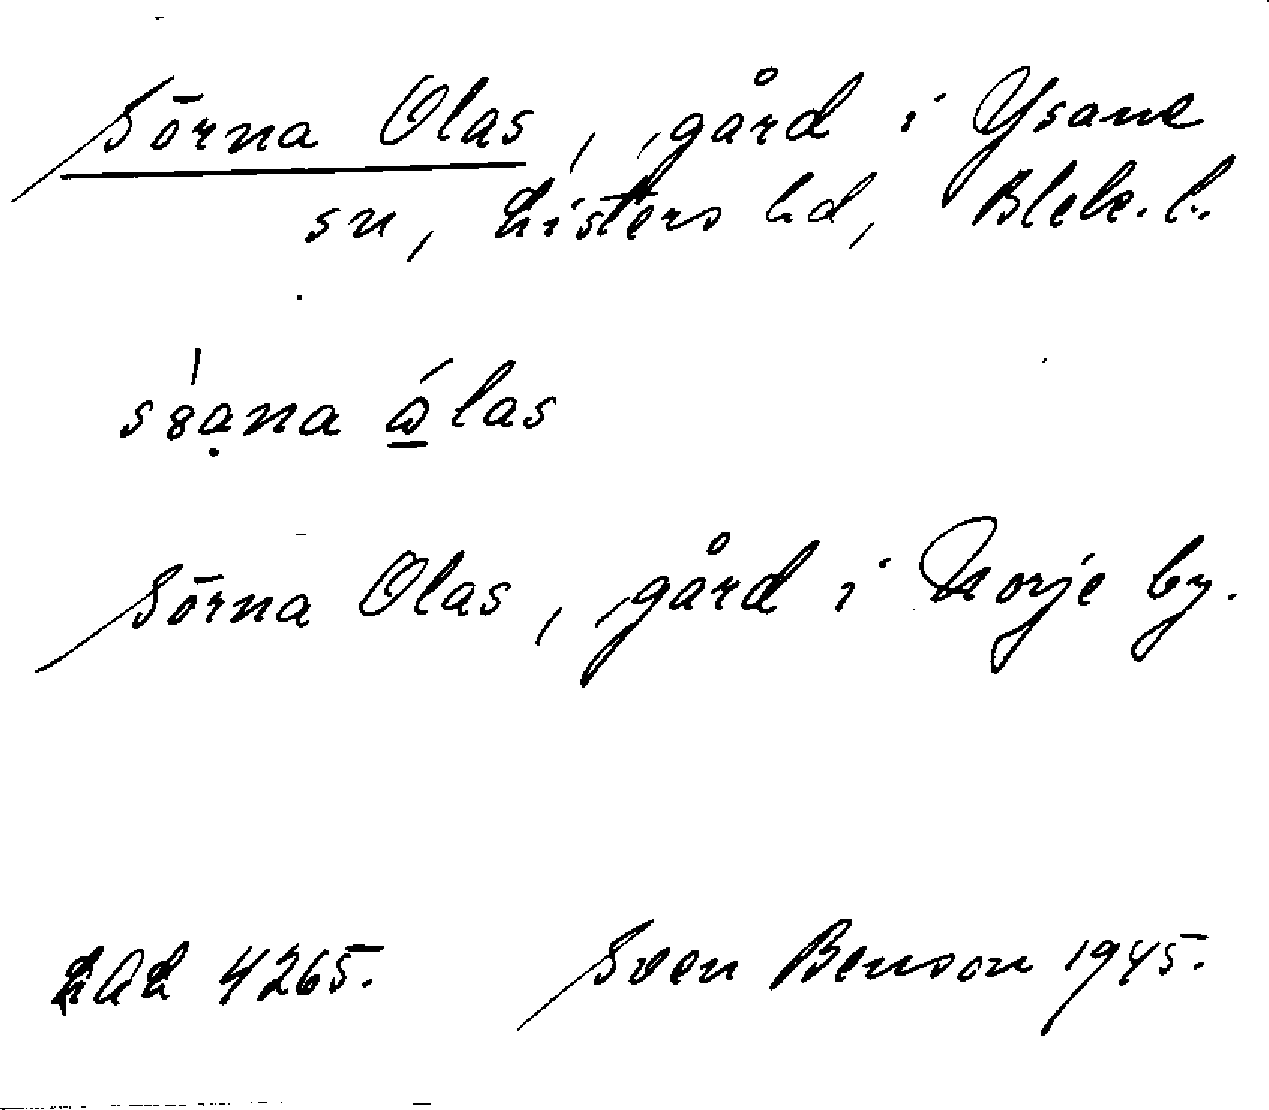 Sörna Olas, gård i Ysane
sn, Listers hd, Blek. l.
Sörna Olas, gård i Norje by.
LAL 4265.    Sven Benson 1945.